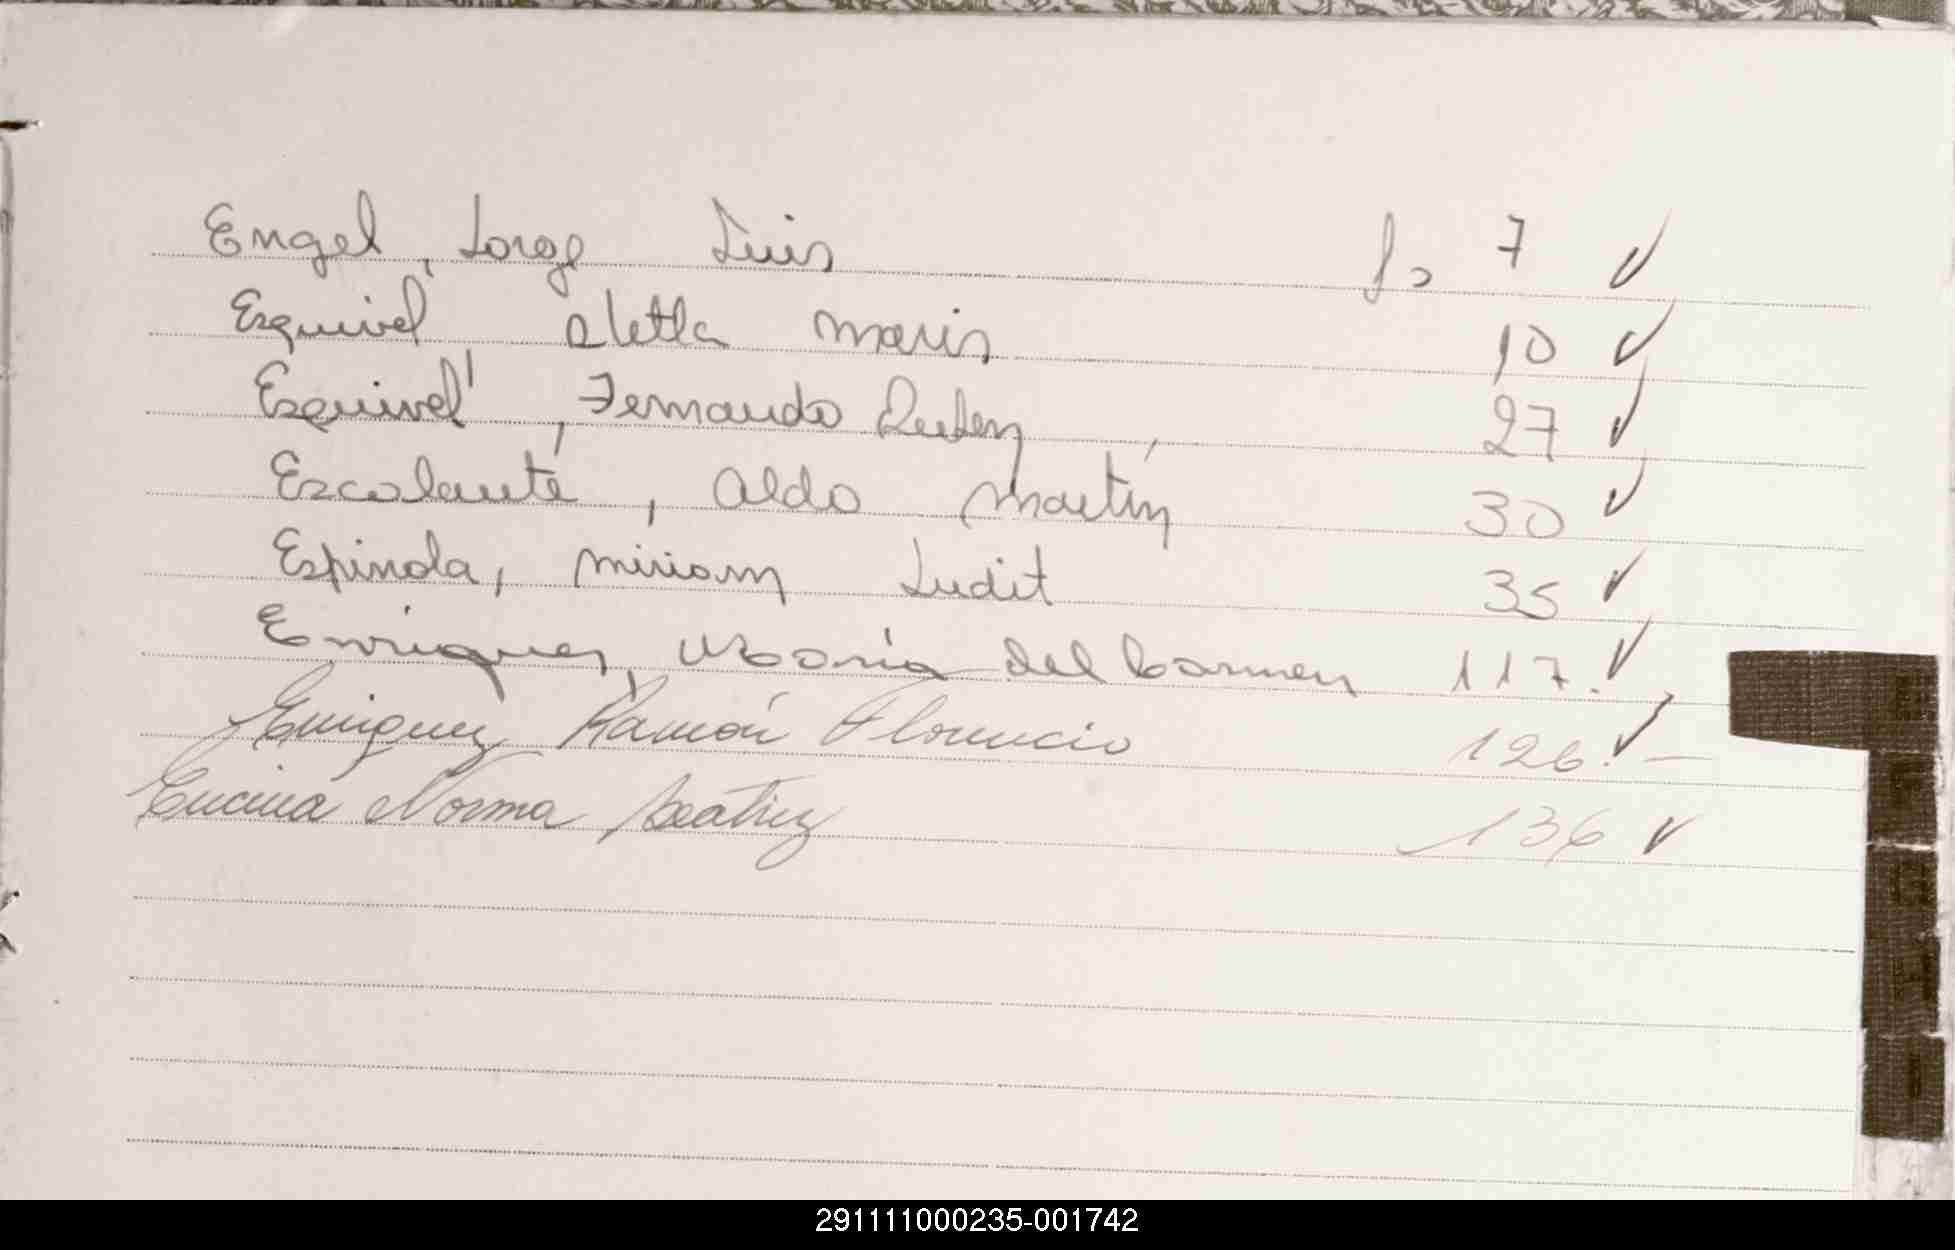 Engel, Jorge Luis fo 7 ✓
Esquivel Stella Maris 10 ✓
Esquivel, Fernando Ruben 27 ✓
Escalante, Aldo Martín 30 ✓
Espinola, Miriam Judit 35 ✓
Enriquez, María del Carmen 117. ✓
Enriquez Ramón Florencio 126. ✓ –
Encina Norma Beatriz 136 ✓
291111000235-001742